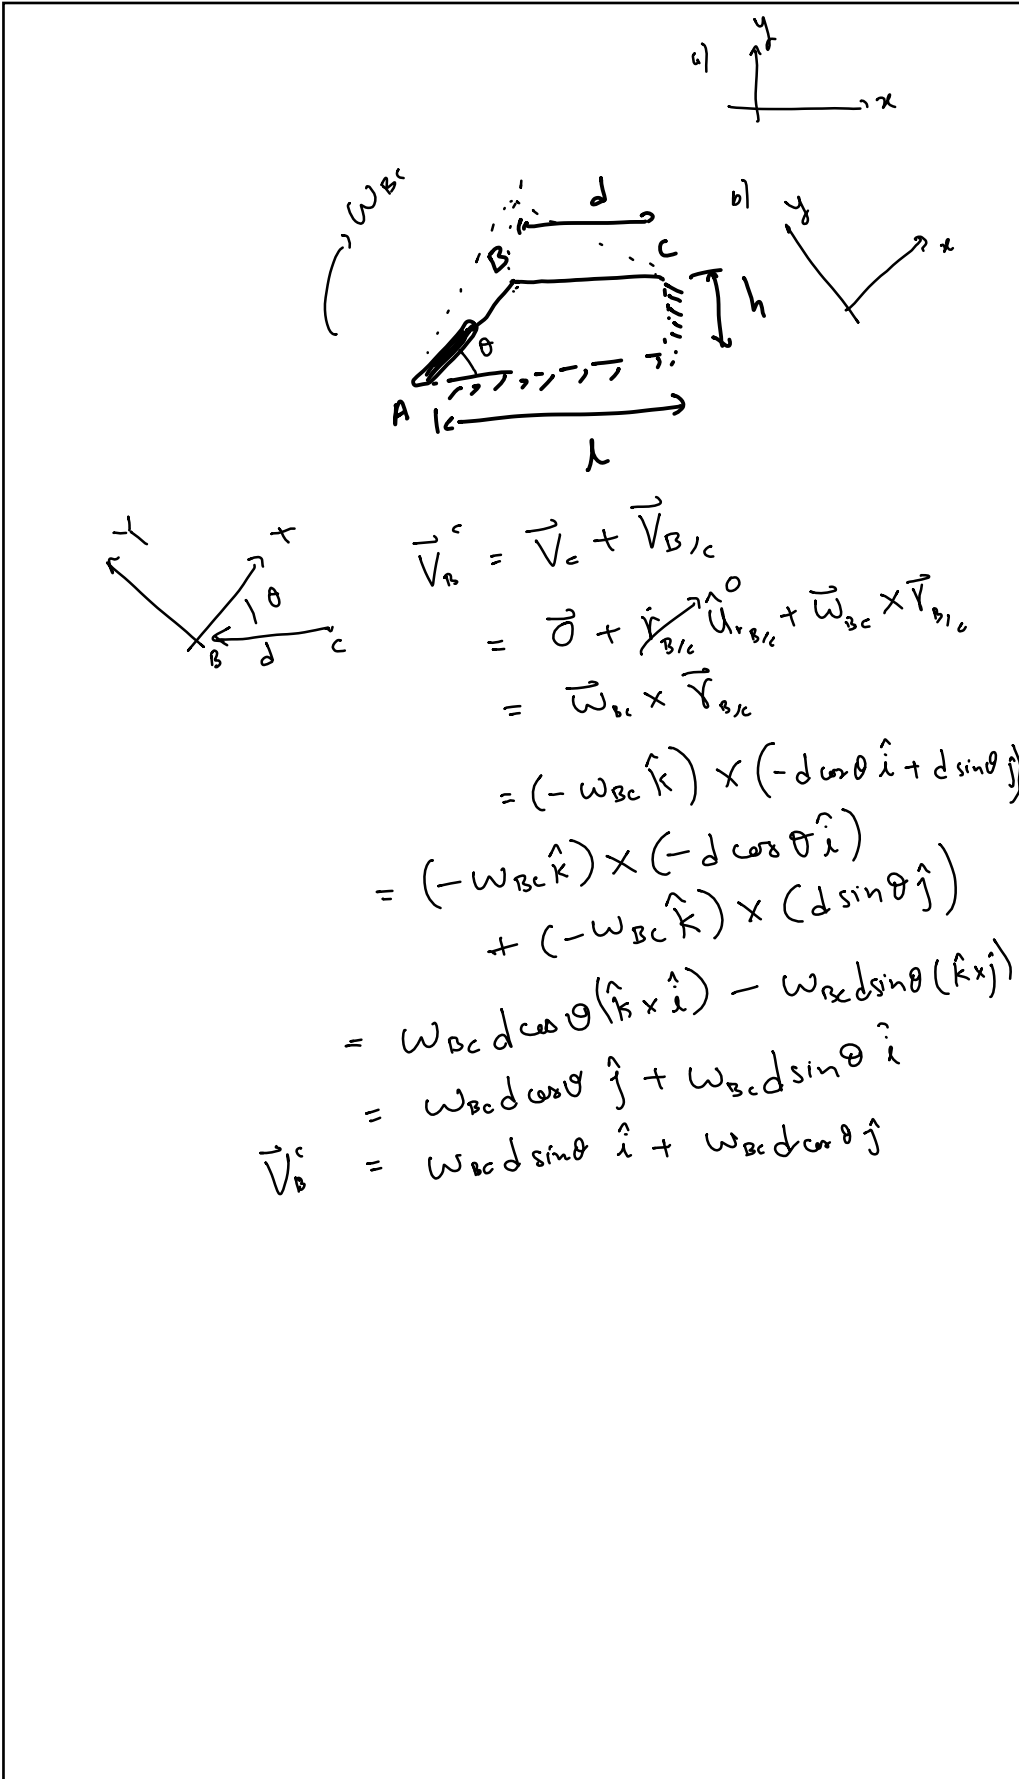 a) y
x
ω_BC
d
b) y
x
B
C
h
θ
A
l
y x
θ
B d C
V⃗_B^c = V⃗_c + V⃗_B/c
= 0⃗ + ṙ_B/c û_rB/c 0 + ω⃗_BC × r⃗_B/c
= ω⃗_BC × r⃗_B/c
= (-ω_BC k̂) × (-d cosθ î + d sinθ ĵ)
= (-ω_BC k̂) × (-d cosθ î)
+ (-ω_BC k̂) × (d sinθ ĵ)
= ω_BC d cosθ (k̂ × î) - ω_BC d sinθ (k̂ × ĵ)
= ω_BC d cosθ ĵ + ω_BC d sinθ î
V⃗_B^c = ω_BC d sinθ î + ω_BC d cosθ ĵ